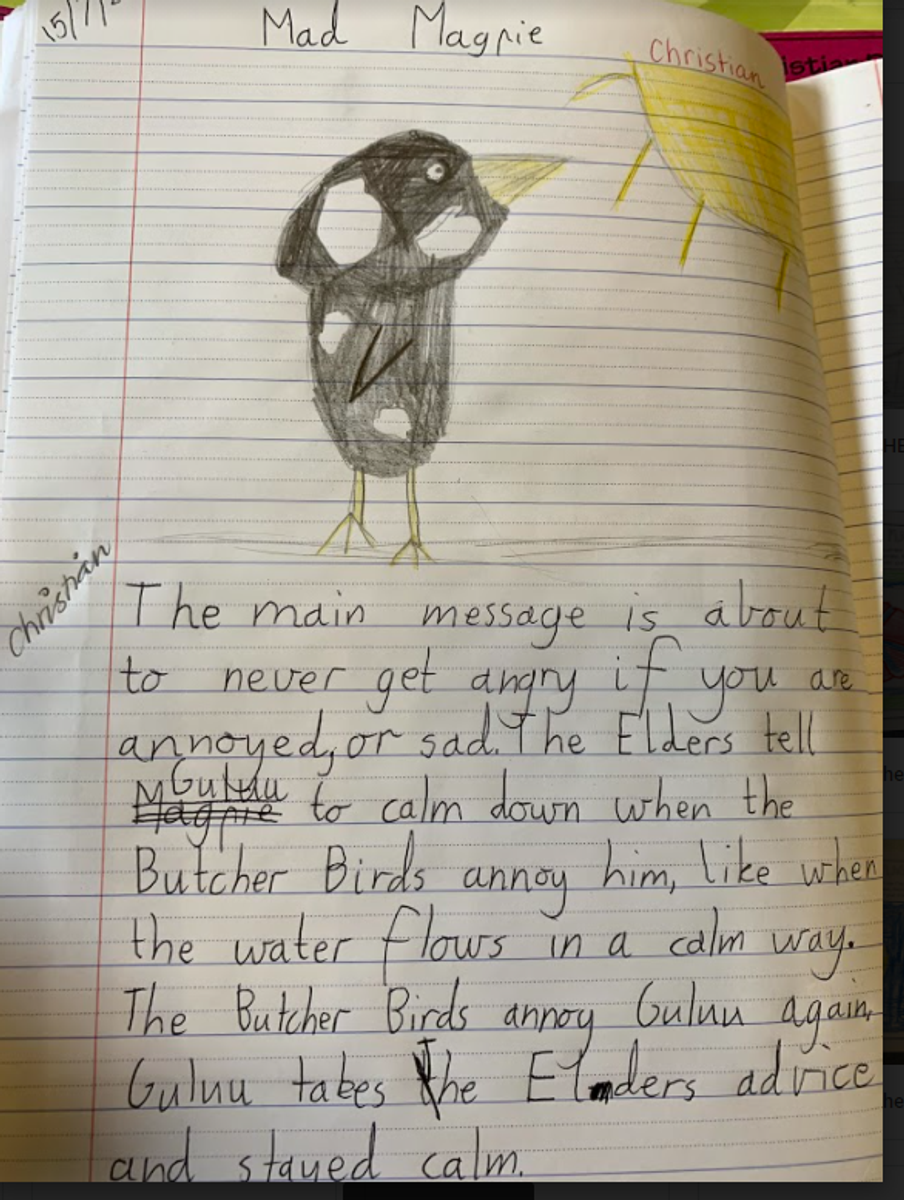 15/7/2
Mad Magpie
Christian
istian
Christian
The main message is about
to never get angry if you are
annoyed, or sad. The Elders tell
Magpie Guluu to calm down when the
Butcher Birds annoy him, like when
the water flows in a calm way.
The Butcher Birds annoy Guluu again,
Guluu takes The Elders advice
and stayed calm.